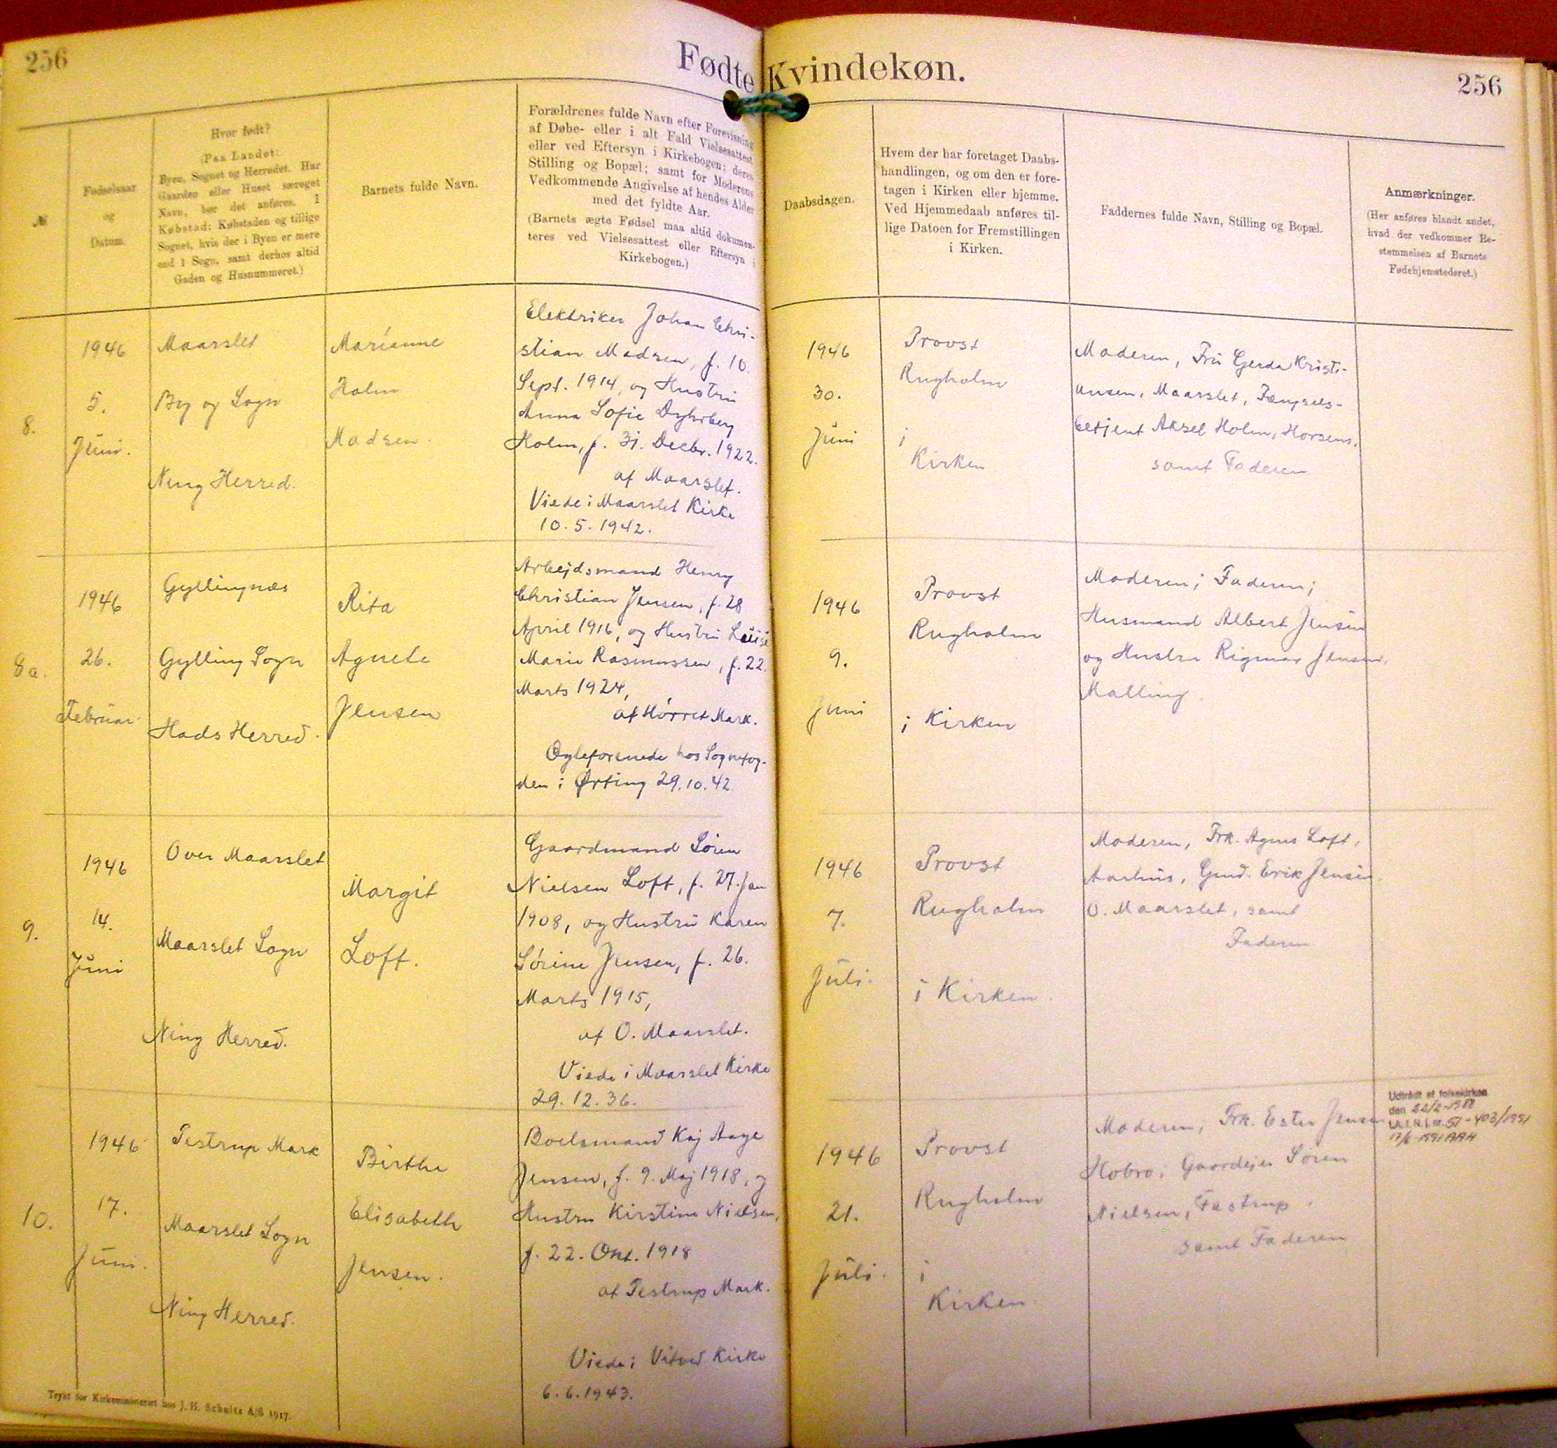 256
Fødte Kvindekøn.
256
№
Fødselsaar
og
Datum.
Hvor født?
(Paa Landet:
Byen, Sognet og Herredet. Har
Gaarden eller Huset særeget
Navn, bør det anføres. I
Købstad: Købstaden og tillige
Sognet, hvis der i Byen er mere
end 1 Sogn, samt derhos altid
Gaden og Husnummeret.)
Barnets fulde Navn.
Forældrenes fulde Navn efter Forevisning
af Døbe- eller i alt Fald Vielsesattest
eller ved Eftersyn i Kirkebogen; deres
Stilling og Bopæl; samt for Moderens
Vedkommende Angivelse af hendes Alder
med det fyldte Aar.
(Barnets ægte Fødsel maa altid dokumen-
teres ved Vielsesattest eller Eftersyn i
Kirkebogen.)
Daabsdagen.
Hvem der har foretaget Daabs-
handlingen, og om den er fore-
tagen i Kirken eller hjemme.
Ved Hjemmedaab anføres til-
lige Datoen for Fremstillingen
i Kirken.
Faddernes fulde Navn, Stilling og Bopæl.
Anmærkninger.
(Her anføres blandt andet,
hvad der vedkommer Be-
stemmelsen af Barnets
Fødehjemstederet.)
8.
1946
5.
Juni.
Maarslet
By og Sogn
Ning Herred.
Marianne
Holm
Madsen.
Elektriker Johan Chri-
stian Madsen, f. 10.
Sept. 1914, og Hustru
Anna Sofie Dyhrberg
Holm, f. 31. Decbr. 1922.
af Maarslet.
Viede i Maarslet Kirke
10.5.1942.
1946
30.
Juni
Provst
Rugholm
i
Kirken
Moderen, Fru Gerda Kristi-
ansen, Maarslet, Fængsels-
betjent Aksel Holm, Horsens,
samt Faderen
8a.
1946
26.
Februar.
Gyllingnæs
Gylling Sogn
Hads Herred.
Rita
Agnete
Jensen
Arbejdsmand Henry
Christian Jensen, f. 28
April 1916, og Hustru Luise
Marie Rasmussen, f. 22.
Marts 1924,
af Hørret Mark.
hos Sognefog-
den i Ørting 29.10.42
1946
9.
Juni
Provst
Rugholm
i Kirken
Moderen; Faderen;
Husmand Albert Jensen
og Hustru Rigmor Jensen,
Malling.
9.
1946
14.
Juni
Over Maarslet
Maarslet Sogn
Ning Herred.
Margit
Loft.
Gaardmand Søren
Nielsen Loft, f. 27. Jan
1908, og Hustru Karen
Sørine Jensen, f. 26.
Marts 1915,
af O. Maarslet.
Viede i Maarslet Kirke
29.12.36.
1946
7.
Juli.
Provst
Rugholm
i Kirken.
Moderen, Frk. Agnes Loft,
Aarhus, Gmd. Erik Jensen.
O. Maarslet, samt
Faderen
10.
1946
17.
Juni.
Testrup Mark
Maarslet Sogn
Ning Herred.
Birthe
Elisabeth
Jensen.
Boelsmand Kaj Aage
Jensen, f. 9. Maj 1918, og
Hustru Kirstine Nielsen,
f. 22. Okt. 1918
af Testrup Mark.
Viede i Vitved Kirke
6.6.1943.
1946
21.
Juli.
Provst
Rugholm
i
Kirken
Moderen, Frk. Ester Jensen
Hobro; Gaardejer Søren
Nielsen, Fastrup.
samt Faderen
Udtrådt af folkekirken
den
Trykt for Kirkeministeriet hos J. H. Schultz A/S 1917.